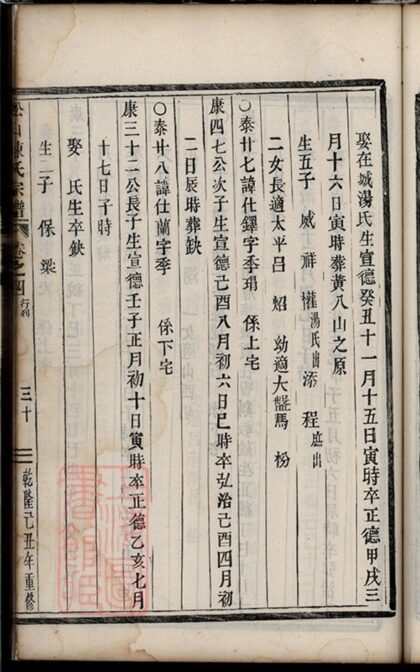 娶在城湯氏生宣德癸丑十一月十五日寅時卒正德甲戌三
月十六日寅時葬黃八山之原
生五子 威 祥 權湯氏出 添 程庶出
二女長適太平呂 炤 幼適大盤馬 枌
○泰廿七諱仕鐸字季瑁 係上宅
康四七公次子生宣德己酉八月初六日巳時卒弘治己酉四月初
二日辰時葬缺
○泰廿八諱仕蘭字季 係下宅
康三十二公長子生宣德壬子正月初十日寅時卒正德乙亥七月
十七日子時
娶 氏生卒缺
生二子 保 梁
山陳氏宗譜 卷之四 行列 三十 乾隆己丑年重修